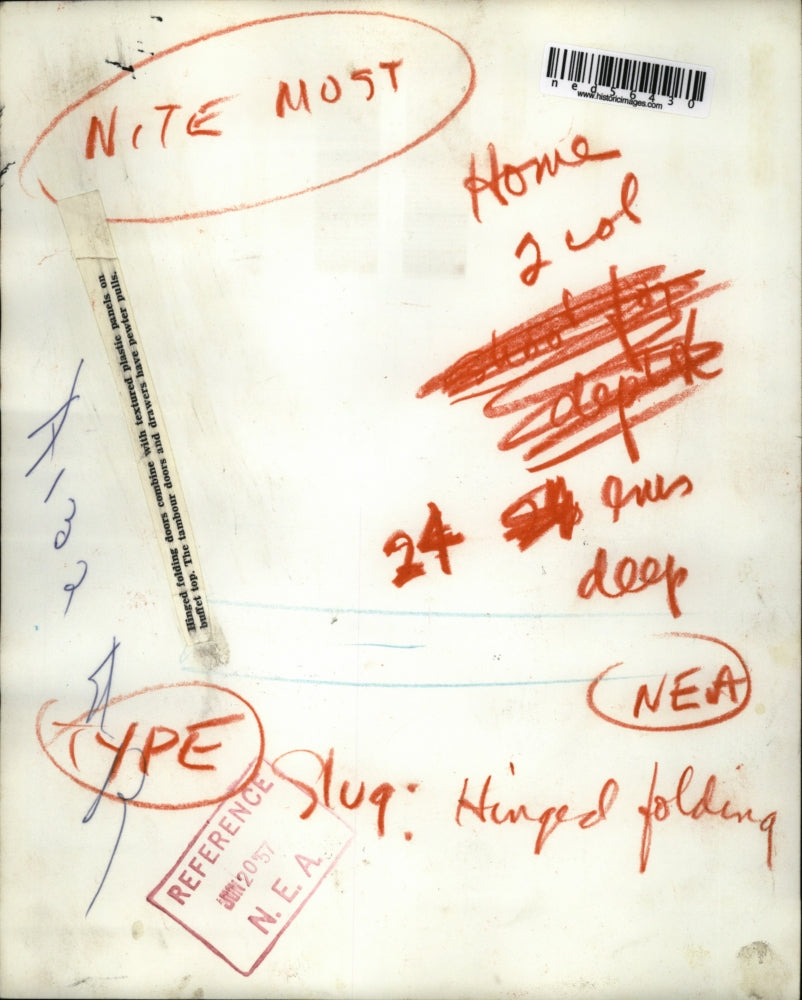 NITE MUST
ned56430
www.historicimages.com
Home
2 col
depth
24 24 ems
deep
Hinged folding doors combine with textured plastic panels on
buffet top. The tambour doors and drawers have pewter pulls.
NEA
TYPE
Slug: Hinged folding
REFERENCE
JUN 20 '57
N. E. A.